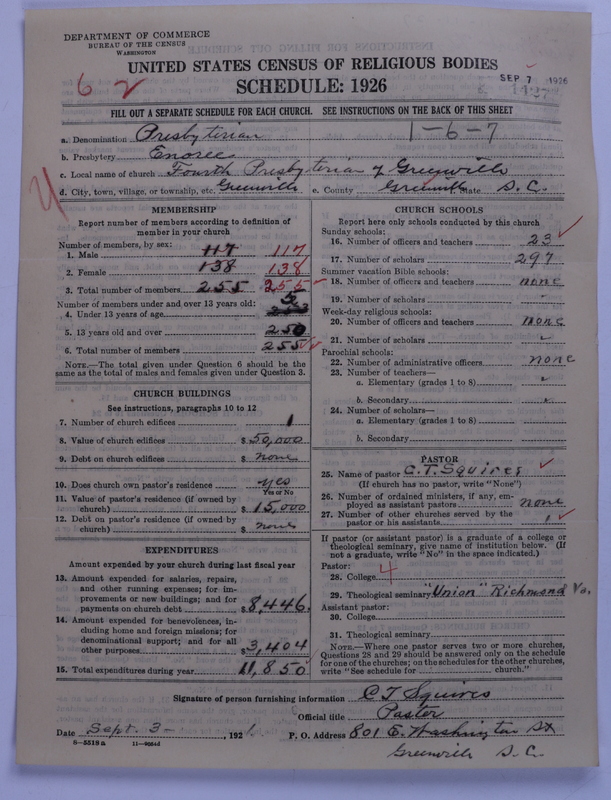 DEPARTMENT OF COMMERCE
BUREAU OF THE CENSUS
WASHINGTON
UNITED STATES CENSUS OF RELIGIOUS BODIES
SCHEDULE: 1926
SEP 7 1926
6 2
FILL OUT A SEPARATE SCHEDULE FOR EACH CHURCH. SEE INSTRUCTIONS ON THE BACK OF THIS SHEET
1-6-7
a. Denomination Presbyterian
b. Presbytery Enoree
c. Local name of church Fourth Presbyterian of Greenville
d. City, town, village, or township, etc. Greenville e. County Greenville State S. C.
MEMBERSHIP
Report number of members according to definition of
member in your church
Number of members, by sex:
1. Male 117 117
2. Female 138 138
3. Total number of members 255 255
Number of members under and over 13 years old:
4. Under 13 years of age 5
5. 13 years old and over 250
6. Total number of members 255
NOTE.—The total given under Question 6 should be the
same as the total of males and females given under Question 3.
CHURCH BUILDINGS
See instructions, paragraphs 10 to 12
7. Number of church edifices 1
8. Value of church edifices $ 50,000
9. Debt on church edifices $ none
10. Does church own pastor's residence yes
Yes or No
11. Value of pastor's residence (if owned by
church) $ 15,000
12. Debt on pastor's residence (if owned by
church) $ none
EXPENDITURES
Amount expended by your church during last fiscal year
13. Amount expended for salaries, repairs,
and other running expenses; for im-
provements or new buildings; and for
payments on church debt $ 8,446.
14. Amount expended for benevolences, in-
cluding home and foreign missions; for
denominational support; and for all
other purposes $ 3,404
15. Total expenditures during year 11,850
CHURCH SCHOOLS
Report here only schools conducted by this church
Sunday schools:
16. Number of officers and teachers 23
17. Number of scholars 297
Summer vacation Bible schools:
18. Number of officers and teachers none
19. Number of scholars "
Week-day religious schools:
20. Number of officers and teachers none
21. Number of scholars "
Parochial schools:
22. Number of administrative officers none
23. Number of teachers—
a. Elementary (grades 1 to 8) "
b. Secondary "
24. Number of scholars—
a. Elementary (grades 1 to 8)
b. Secondary
PASTOR
25. Name of pastor C. T. Squires
(If church has no pastor, write "None")
26. Number of ordained ministers, if any, em-
ployed as assistant pastors none
27. Number of other churches served by the
pastor or his assistants 1
If pastor (or assistant pastor) is a graduate of a college or
theological seminary, give name of institution below. (If
not a graduate, write "No" in the space indicated.)
Pastor:
28. College 4
29. Theological seminary "Union" Richmond Va.
Assistant pastor:
30. College
31. Theological seminary
NOTE.—Where one pastor serves two or more churches,
Questions 28 and 29 should be answered only on the schedule
for one of the churches; on the schedules for the other churches,
write "See schedule for church."
Signature of person furnishing information C T Squires
Official title Pastor
Date Sept. 3- , 192 P. O. Address 801 E. Washington St
8-5519a 11-9264d
Greenville S. C.